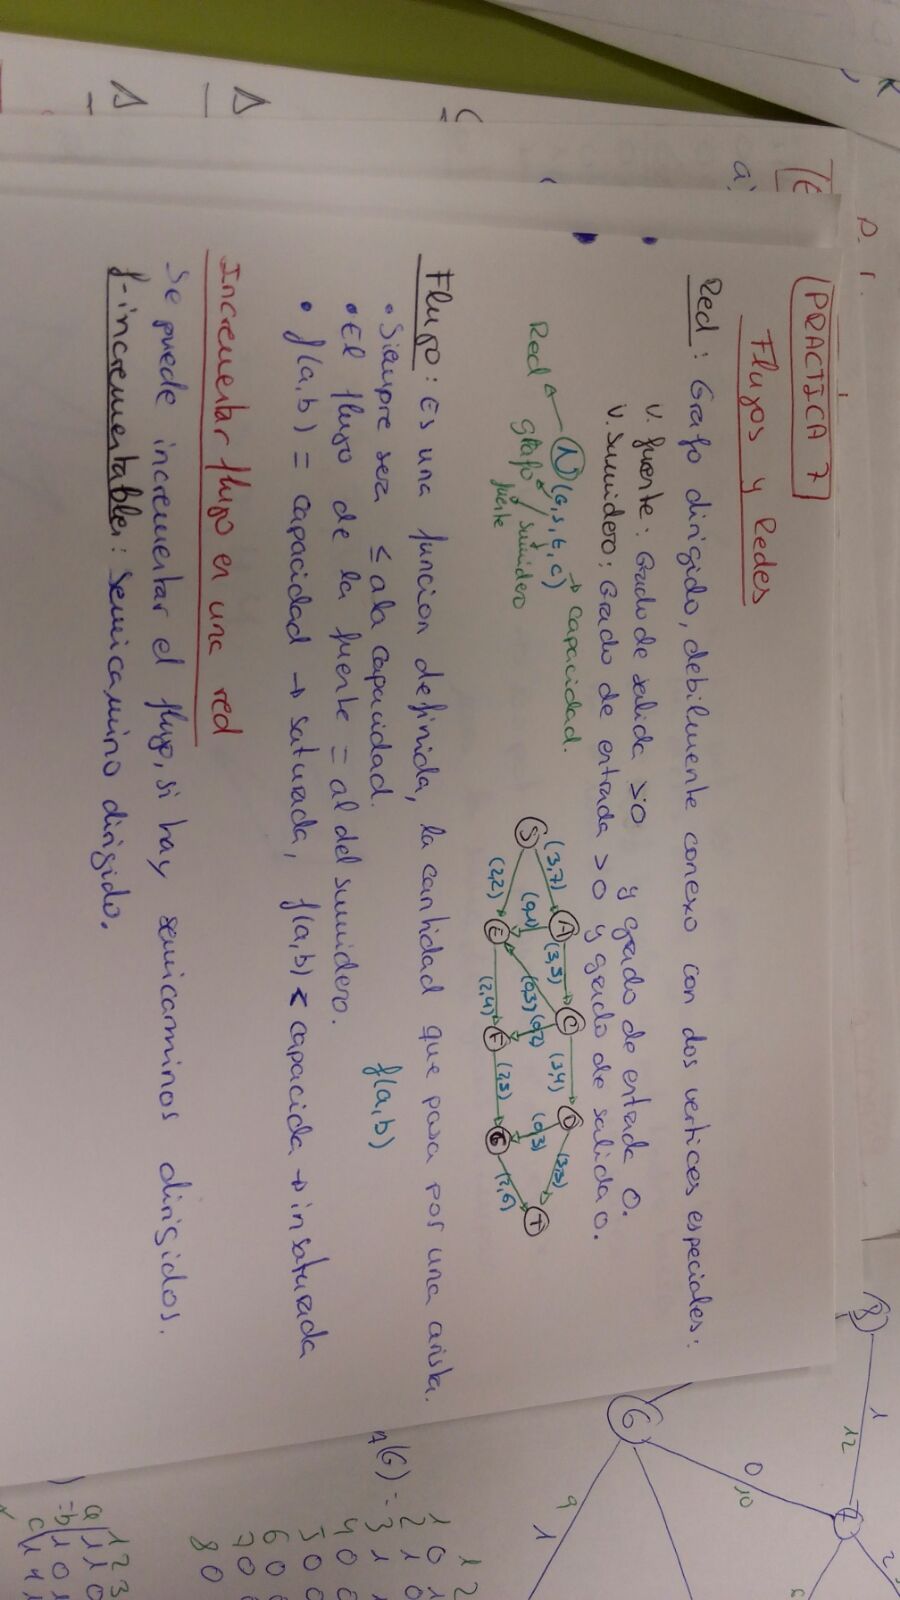 PRACTICA 7
Flujos y Redes
Red: Grafo dirigido, debilmente conexo con dos vertices especiales:
V. fuente: Grado de salida >0 y grado de entrada 0.
V. Sumidero: Grado de entrada >0 y grado de salida 0.
N (G, s, t, c) → capacidad.
Red
grafo
fuente
sumidero
S A C D T E F G
(3,7) (3,5) (3,4) (3,3)
(0,1) (0,3) (0,2) (0,3)
(2,2) (2,4) (2,5) (2,6)
Flujo: Es una funcion definida, la cantidad que pasa por una arista.
• Siempre sera ≤ a la capacidad. f(a,b)
• El flujo de la fuente = al del sumidero.
• f(a,b) = capacidad → saturada, f(a,b) < capacida → insaturada
Incrementar flujo en una red
Se puede incrementar el flujo, si hay semicaminos dirigidos.
f-incrementable: Semicamino dirigido.
8 1 12 7 2
0 10
6
9 1
1 2
1 0 1
2 1 0
(G) = 3 1 1
4 0 0
5 0 0
6 0 0
7 0 0
8 0
1 2 3
a 1 1 0
=b 1 0 1
c 1 1 1
a)